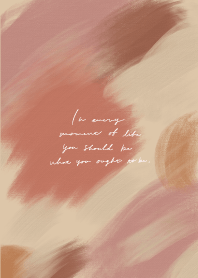 In every
moment of life
you should be
who you ought to be.